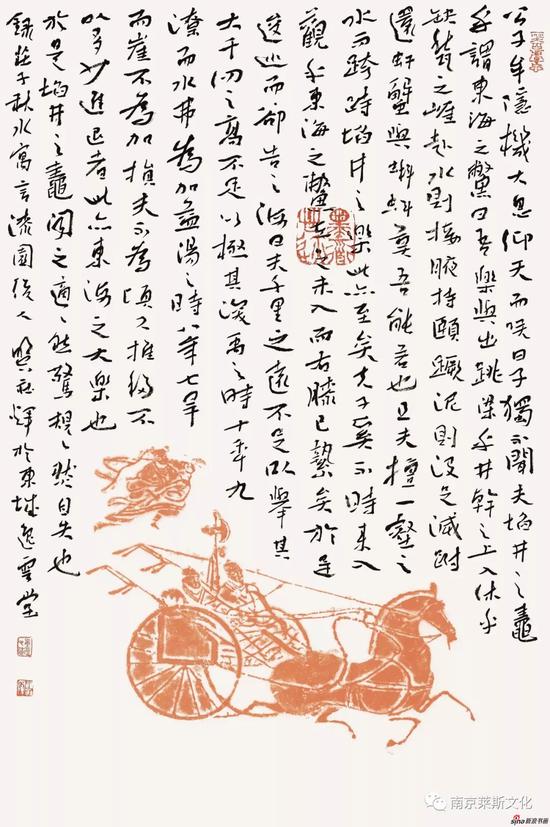 公子牟隱機大息仰天而笑曰子獨不聞夫埳井之鼃
乎謂東海之鱉曰吾樂與出跳梁乎井幹之上入休乎
缺甃之崖赴水則接腋持頤蹶泥則沒足滅跗
還虷蟹與蝌蚪莫吾能若也且夫擅一壑之
水而跨跱埳井之樂此亦至矣夫子奚不時來入
觀乎東海之鱉左足未入而右膝已縶矣於是
逡巡而卻告之海曰夫千里之遠不足以舉其
大千仞之高不足以極其深禹之時十年九
潦而水弗為加益湯之時八年七旱
而崖不為加損夫不為頃久推移不
以多少進退者此亦東海之大樂也
於是埳井之鼃聞之適〻然驚規〻然自失也
錄莊子秋水寓言漆園後人於東城逸雲堂
南京莱斯文化
sina新浪书画